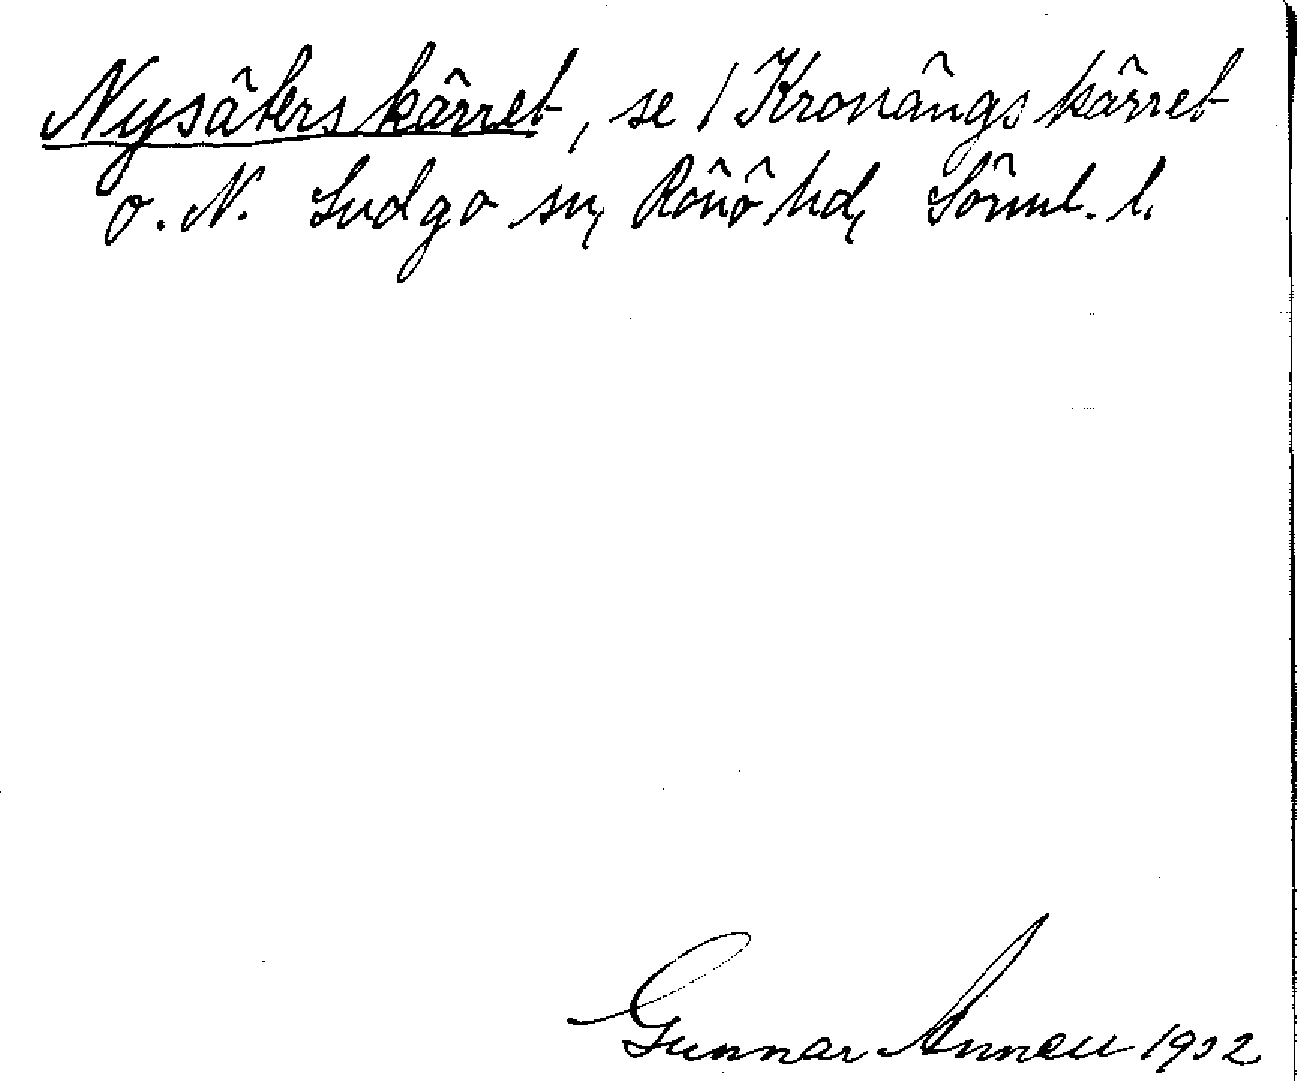 Nysâters kârret, se / Kronângs kârret
o. N. Ludgo sn, Rönö hd, Sörml. l.
Gunnar 1932